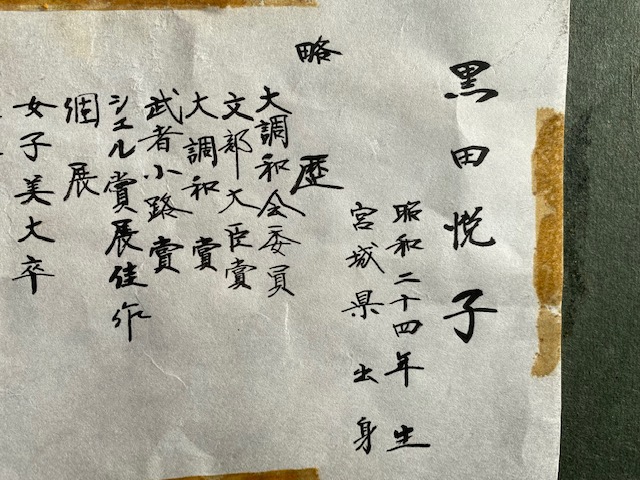 黒田悦子
昭和二十四年生
宮城県出身
略歴
大調和会委員
文部大臣賞
大調和賞
武者小路賞
シェル賞展佳作
個展
女子美大卒